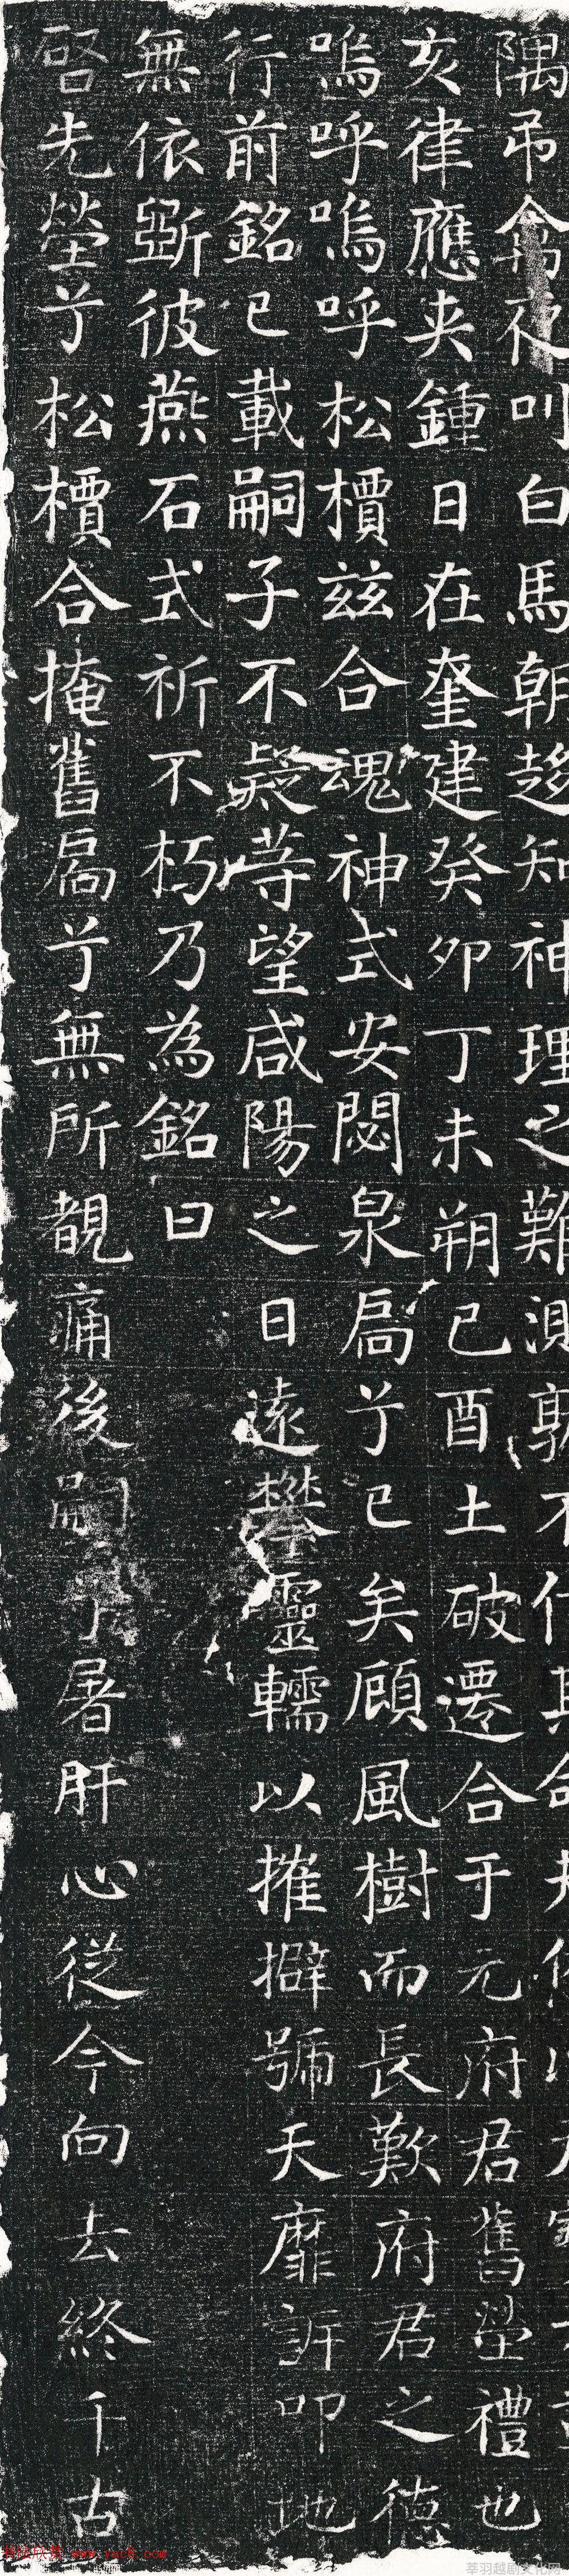 隅弔禽夜叫白馬朝趍知神理之難測孰不
亥律應夾鍾日在奎建癸卯丁未朔己酉土破遷合于元府君舊塋禮也
嗚呼嗚呼松檟兹合魂神式安閟泉扄兮已矣顧風樹而長歎府君之德
行前銘已載嗣子不疑等望咸陽之日遠攀靈轜以摧擗號天靡訴叩地
無依斲彼燕石式祈不朽乃為銘曰
啓先塋兮松檟合掩舊扄兮無所覩痛後嗣兮屠肝心從今向去終千古
书法欣赏 www.yac8.com
莘羽越剧文化网